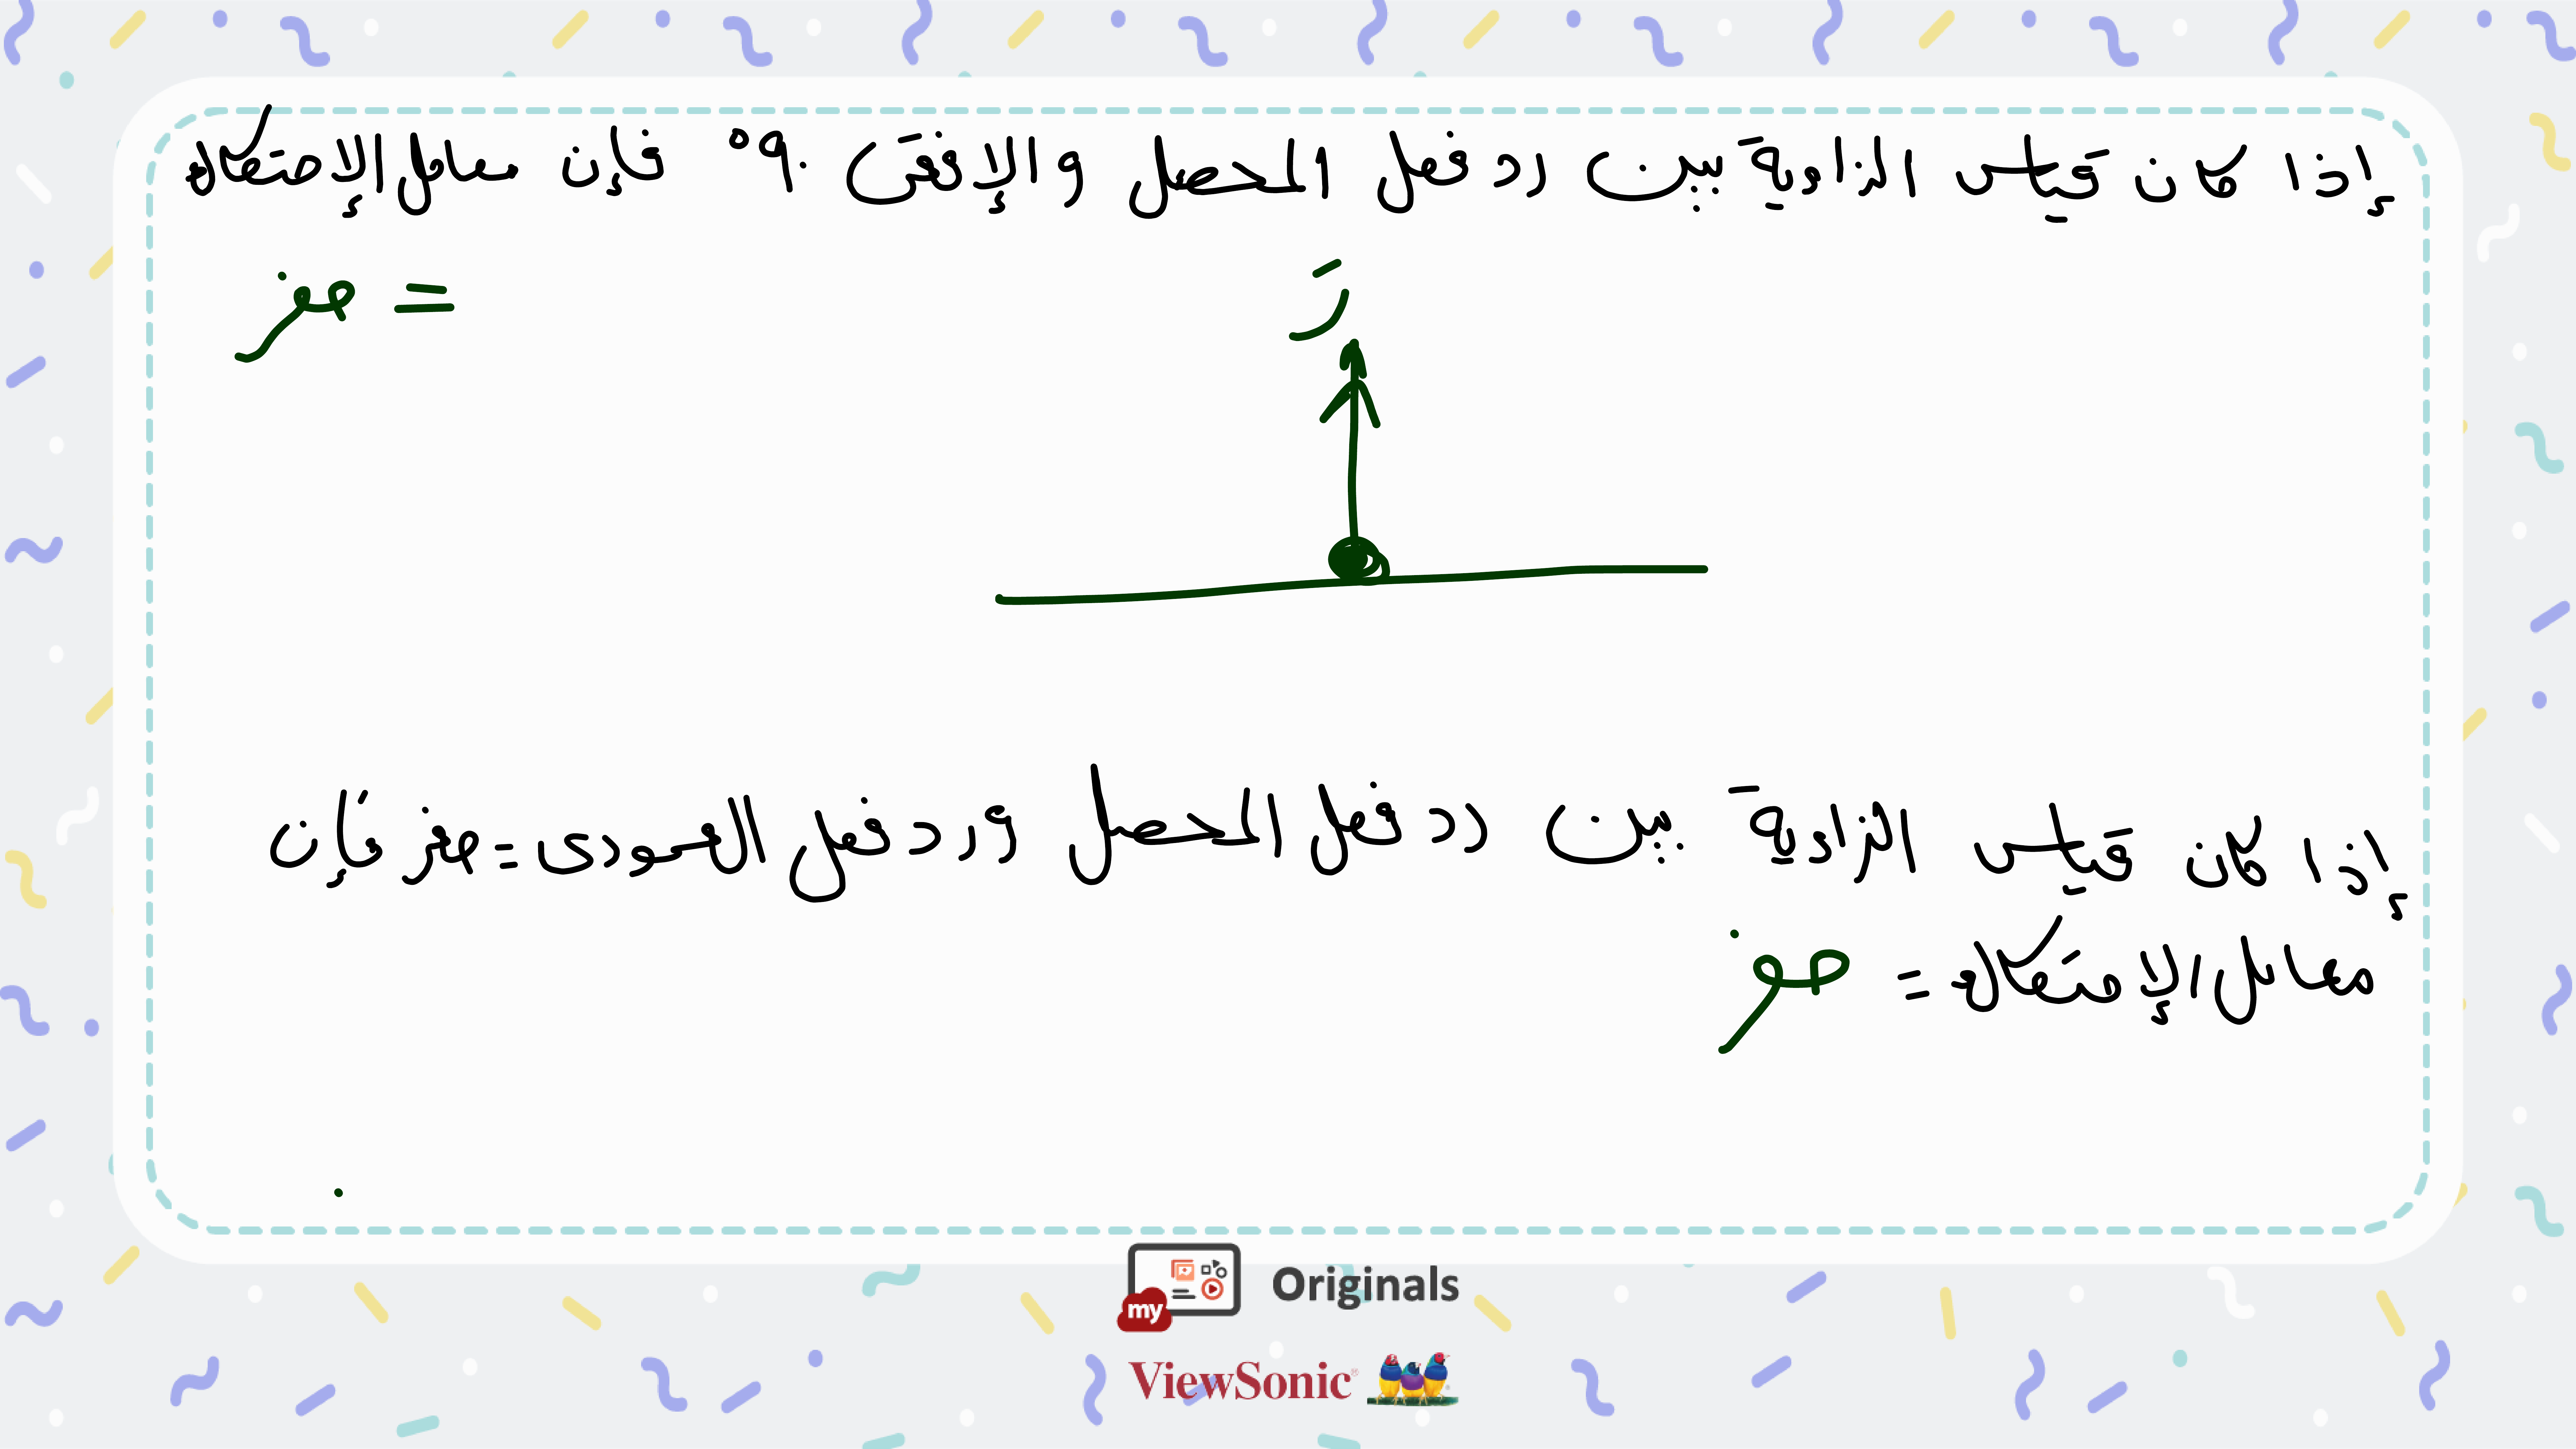 إذا كان قياس الزاوية بين رد فعل المحصل والإفقى ٩٠° فإن معامل الإحتكاك
= صفر
رَ
إذا كان قياس الزاوية بين رد فعل المحصل ورد فعل العمودى = صفر فإن
معامل الإحتكاك = صفر
my Originals
ViewSonic